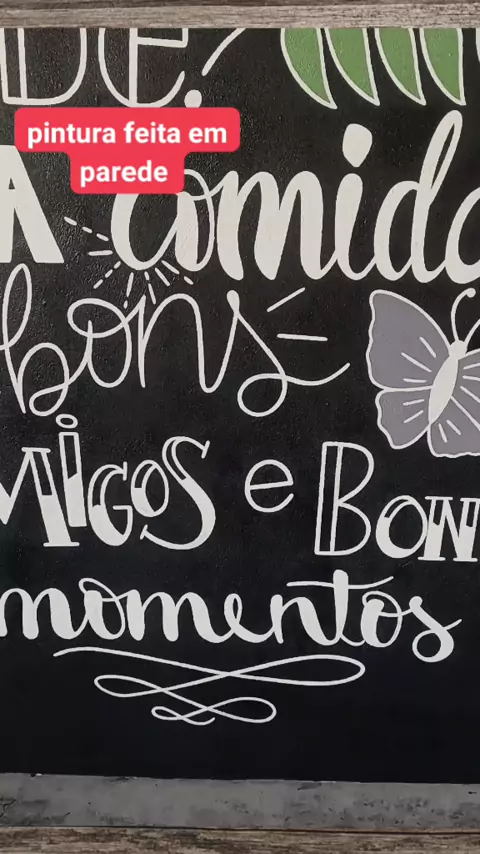 DE:
pintura feita em
parede
A comida
bons
MIGOS e BON
momentos